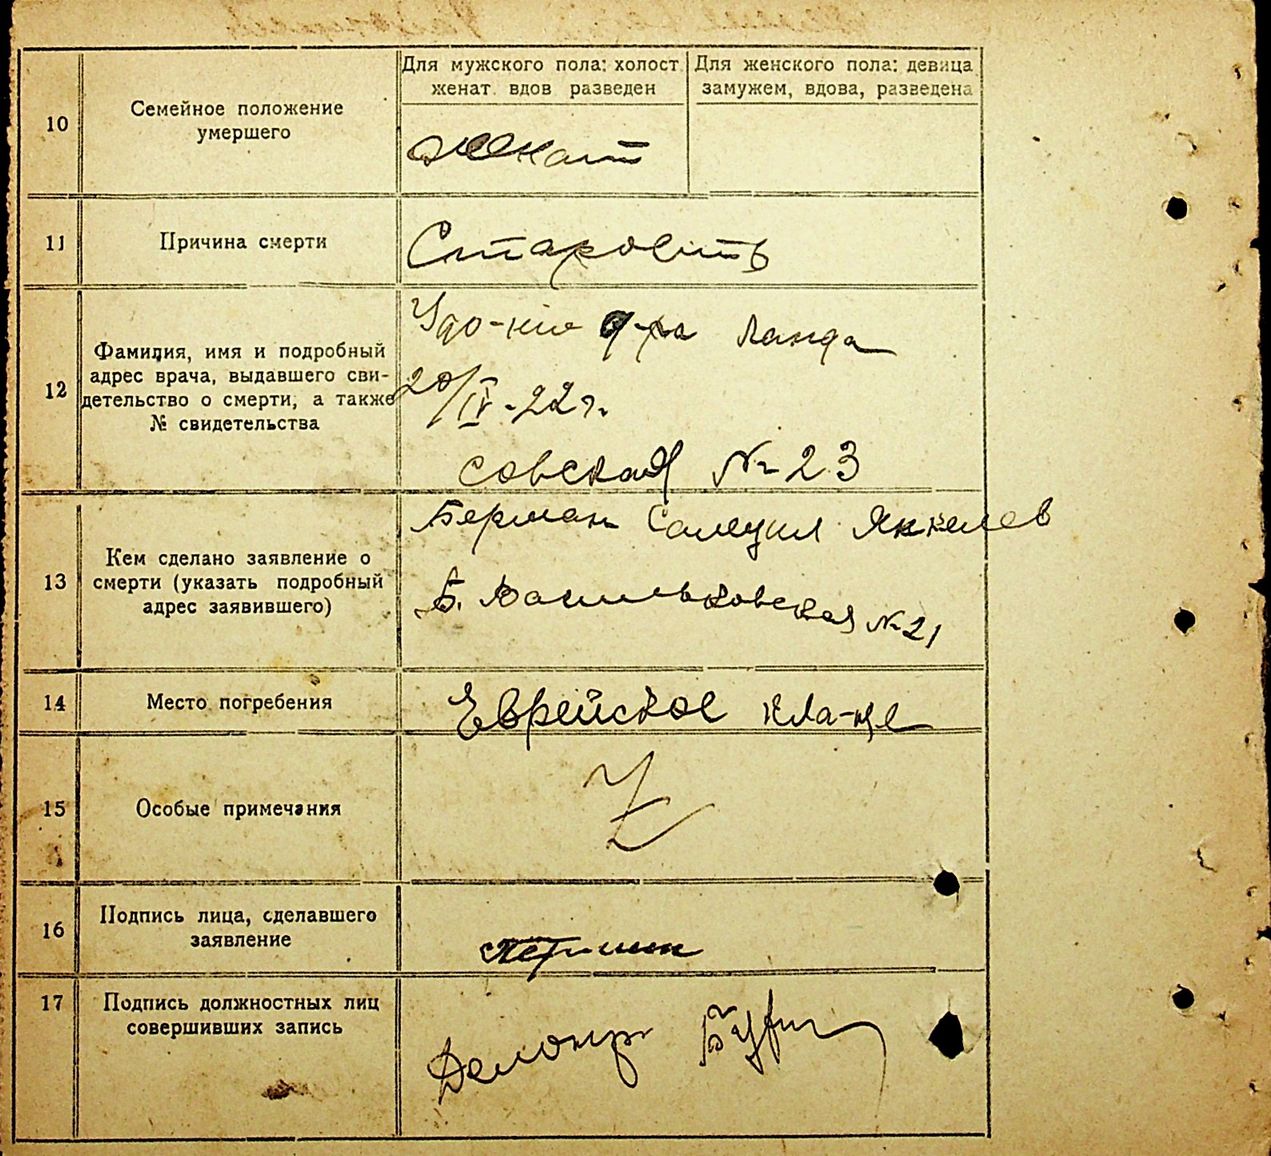 Для мужского пола: холост
женат. вдов разведен
Для женского пола: девица
замужем, вдова, разведена
10
Семейное положение
умершего
женат
11
Причина смерти
Старость
12
Фамилия, имя и подробный
адрес врача, выдавшего сви-
детельство о смерти, а также
№ свидетельства
Удо-ние д-ра Ланда
20/IV-22 г.
совская № 23
13
Кем сделано заявление о
смерти (указать подробный
адрес заявившего)
Берман Самуил Янкелев
Б. Васильковская № 21
14
Место погребения
Еврейское кла-ще
15
Особые примечания
16
Подпись лица, сделавшего
заявление
17
Подпись должностных лиц
совершивших запись
Делопр